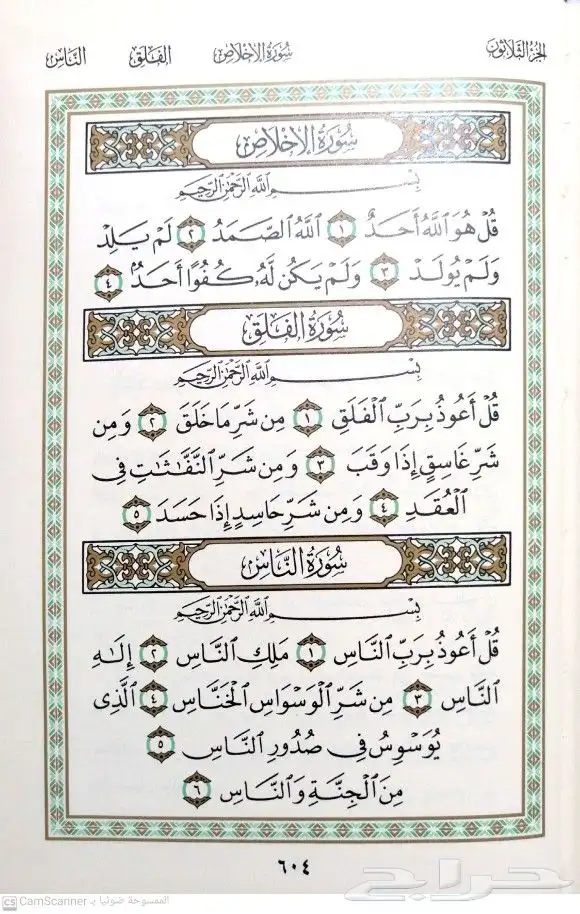 الجزء الثلاثون سورة الإخلاص الفلق الناس
سُورَةُ الإِخْلَاصِ
بِسْمِ ٱللَّهِ ٱلرَّحْمَٰنِ ٱلرَّحِيمِ
قُلْ هُوَ ٱللَّهُ أَحَدٌ ١ ٱللَّهُ ٱلصَّمَدُ ٢ لَمْ يَلِدْ
وَلَمْ يُولَدْ ٣ وَلَمْ يَكُن لَّهُۥ كُفُوًا أَحَدٌۢ ٤
سُورَةُ الفَلَقِ
بِسْمِ ٱللَّهِ ٱلرَّحْمَٰنِ ٱلرَّحِيمِ
قُلْ أَعُوذُ بِرَبِّ ٱلْفَلَقِ ١ مِن شَرِّ مَا خَلَقَ ٢ وَمِن
شَرِّ غَاسِقٍ إِذَا وَقَبَ ٣ وَمِن شَرِّ ٱلنَّفَّٰثَٰتِ فِى
ٱلْعُقَدِ ٤ وَمِن شَرِّ حَاسِدٍ إِذَا حَسَدَ ٥
سُورَةُ النَّاسِ
بِسْمِ ٱللَّهِ ٱلرَّحْمَٰنِ ٱلرَّحِيمِ
قُلْ أَعُوذُ بِرَبِّ ٱلنَّاسِ ١ مَلِكِ ٱلنَّاسِ ٢ إِلَٰهِ
ٱلنَّاسِ ٣ مِن شَرِّ ٱلْوَسْوَاسِ ٱلْخَنَّاسِ ٤ ٱلَّذِى
يُوَسْوِسُ فِى صُدُورِ ٱلنَّاسِ ٥
مِنَ ٱلْجِنَّةِ وَٱلنَّاسِ ٦
٦٠٤
حراج
الممسوحة ضوئيا بـ CamScanner
CS